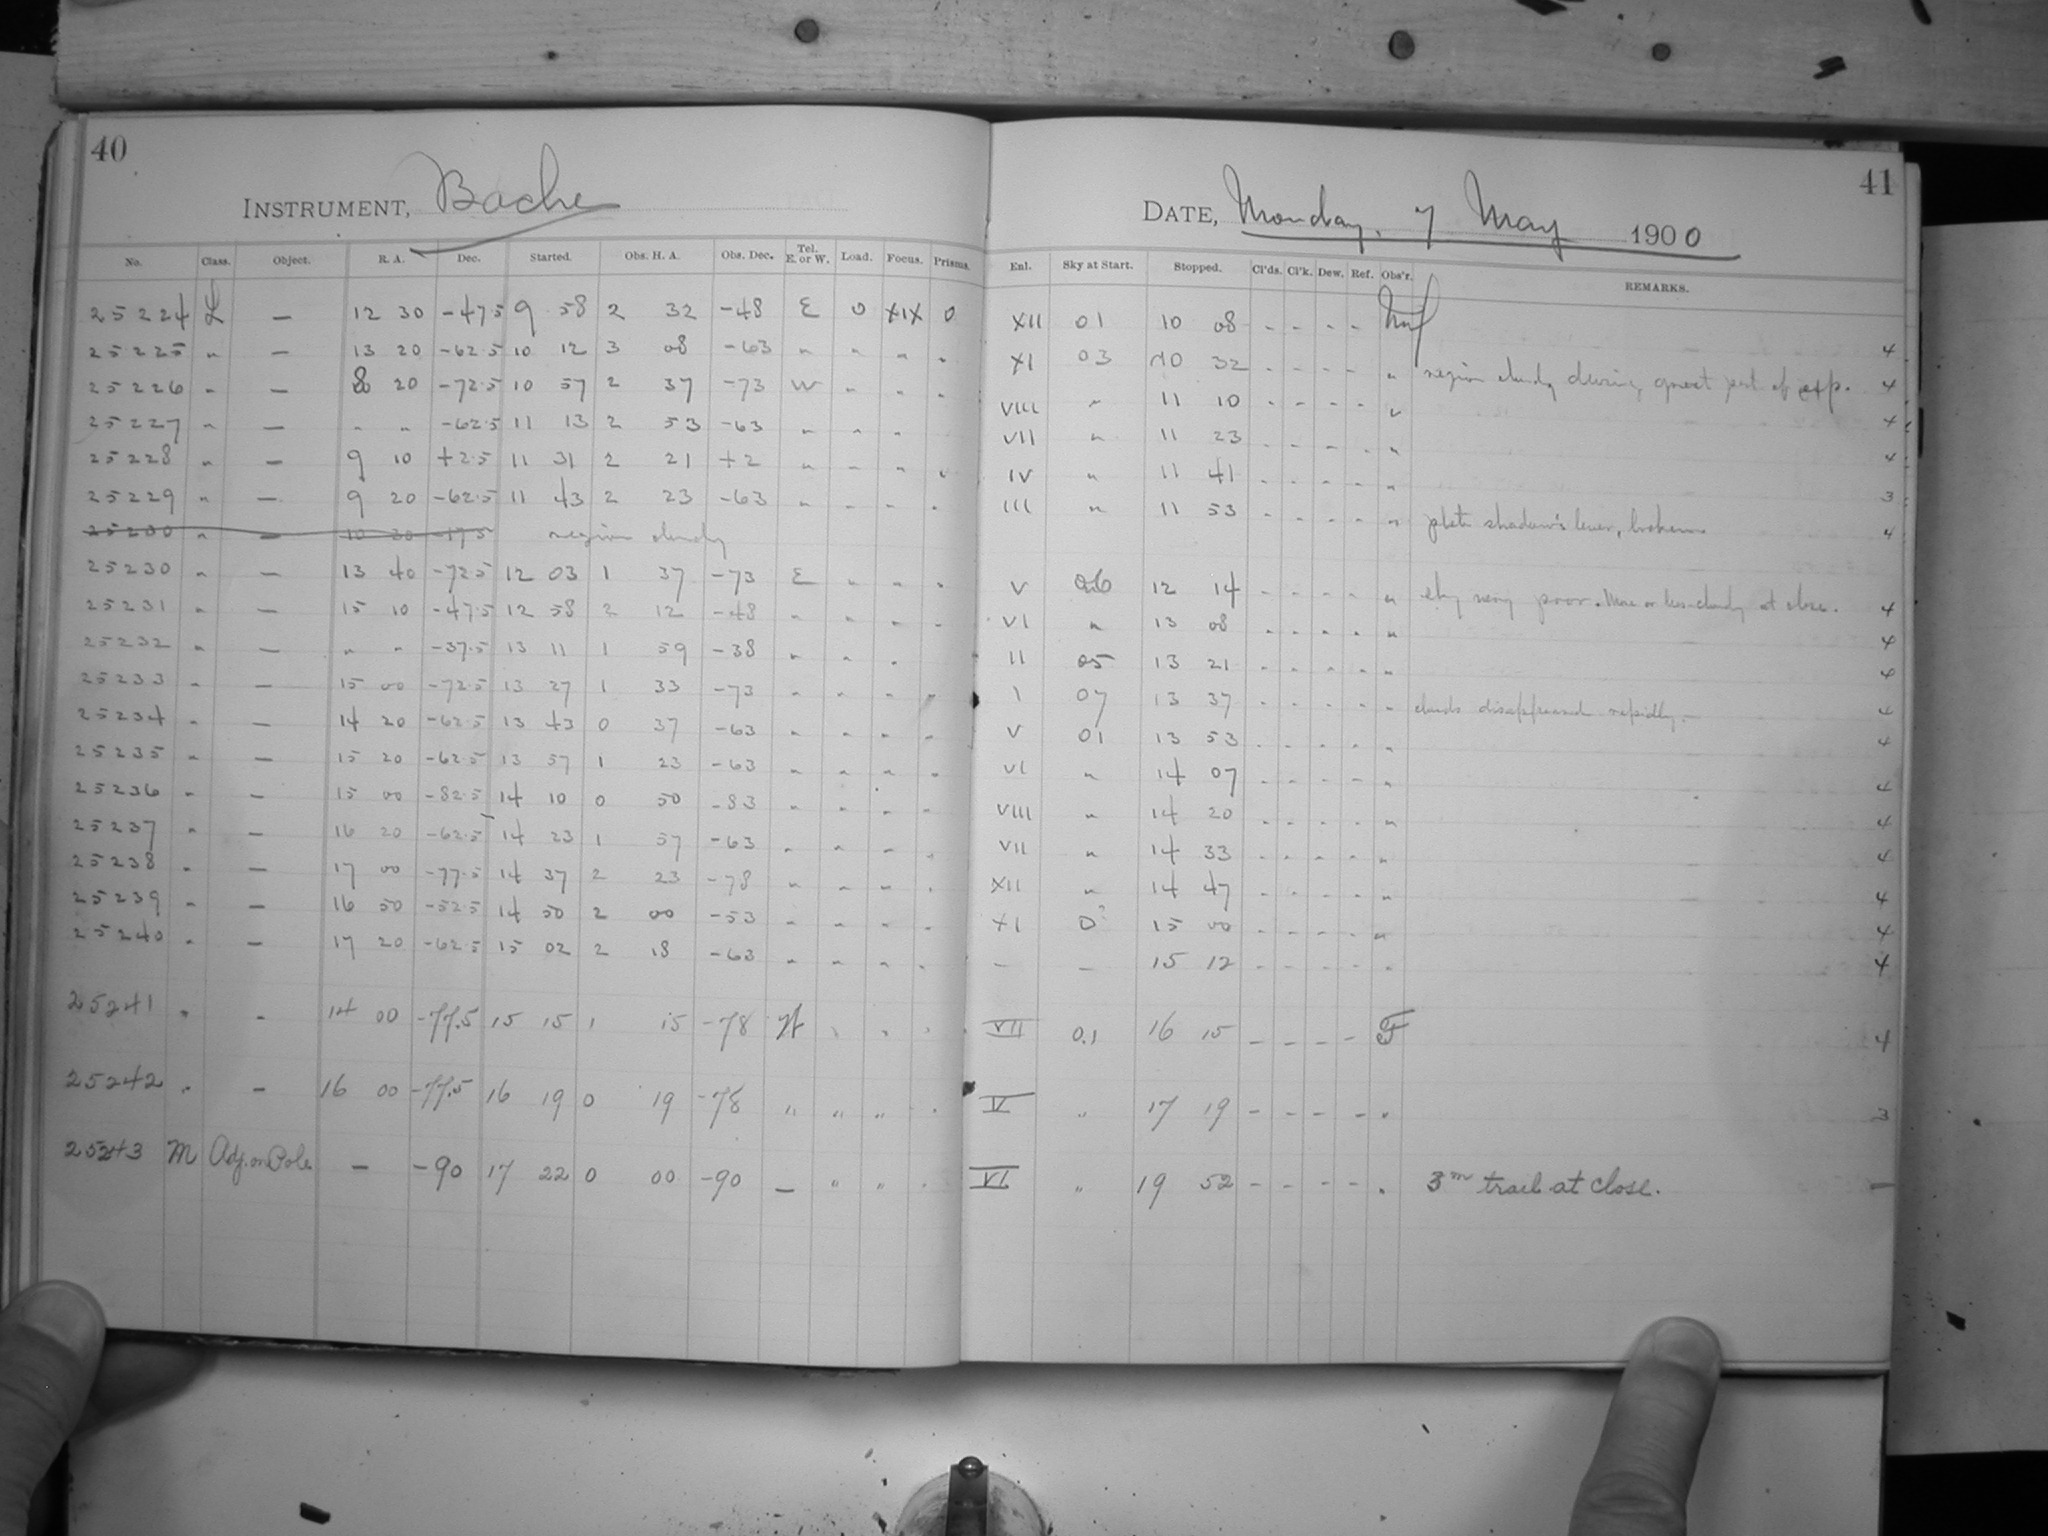 40
INSTRUMENT, Bache
No. Class. Object. R. A. Dec. Started. Obs. H. A. Obs. Dec. Tel. E. or W. Load. Focus. Prisms.
25224 L — 12 30 -47.5 9 58 2 32 -48 E 0 XIX 0
25225 " — 13 20 -62.5 10 12 3 08 -63 " " " "
25226 " — 8 20 -72.5 10 57 2 37 -73 W " " "
25227 " — " " -62.5 11 13 2 53 -63 " " "
25228 " — 9 10 +2.5 11 31 2 21 +2 " " " "
25229 " — 9 20 -62.5 11 43 2 23 -63 " " " "
25230 " — 10 30 -17.5 region cloudy
25230 " — 13 40 -72.5 12 03 1 37 -73 E " " "
25231 " — 15 10 -47.5 12 58 2 12 -48 " " " "
25232 " — " " -37.5 13 11 1 59 -38 " " "
25233 " — 15 00 -72.5 13 27 1 33 -73 " " " "
25234 " — 14 20 -62.5 13 43 0 37 -63 " " " "
25235 " — 15 20 -62.5 13 57 1 23 -63 " " " "
25236 " — 15 00 -82.5 14 10 0 50 -83 " " "
25237 " — 16 20 -62.5 14 23 1 57 -63 " " " "
25238 " — 17 00 -77.5 14 37 2 23 -78 " " " "
25239 " — 16 50 -52.5 14 50 2 00 -53 " " " "
25240 " — 17 20 -62.5 15 02 2 18 -63 " " " "
25241 " - 14 00 -77.5 15 15 1 15 -78 W " " "
25242 " - 16 00 -77.5 16 19 0 19 -78 " " " "
25243 M Adj. on Pole — -90 17 22 0 00 -90 — " " "
41
DATE, Monday, 7 May 1900
Enl. Sky at Start. Stopped. Cl'ds. Cl'k. Dew. Ref. Obs'r. REMARKS.
XII 01 10 08 - - - - 4
XI 03 10 32 - - - - " region cloudy during great part of exp. 4
VIII " 11 10 - - - - " 4
VII " 11 23 - - - - " 4
IV " 11 41 - - - - " 3
III " 11 53 - - - - " plate shadow's lever, broken 4
V 06 12 14 - - - - " sky very poor. More or less cloudy at close. 4
VI " 13 08 - - - - " 4
II 05 13 21 - - - - " 4
I 07 13 37 - - - - " clouds disappeared rapidly. 4
V 01 13 53 - - - - " 4
VI " 14 07 - - - - " 4
VIII " 14 20 - - - - " 4
VII " 14 33 - - - - " 4
XII " 14 47 - - - - " 4
XI 0? 15 00 - - - - " 4
— — 15 12 - - - - " 4
VII 0.1 16 15 - - - - F 4
V " 17 19 - - - - " 3
VI " 19 52 - - - - " 3m trail at close. —